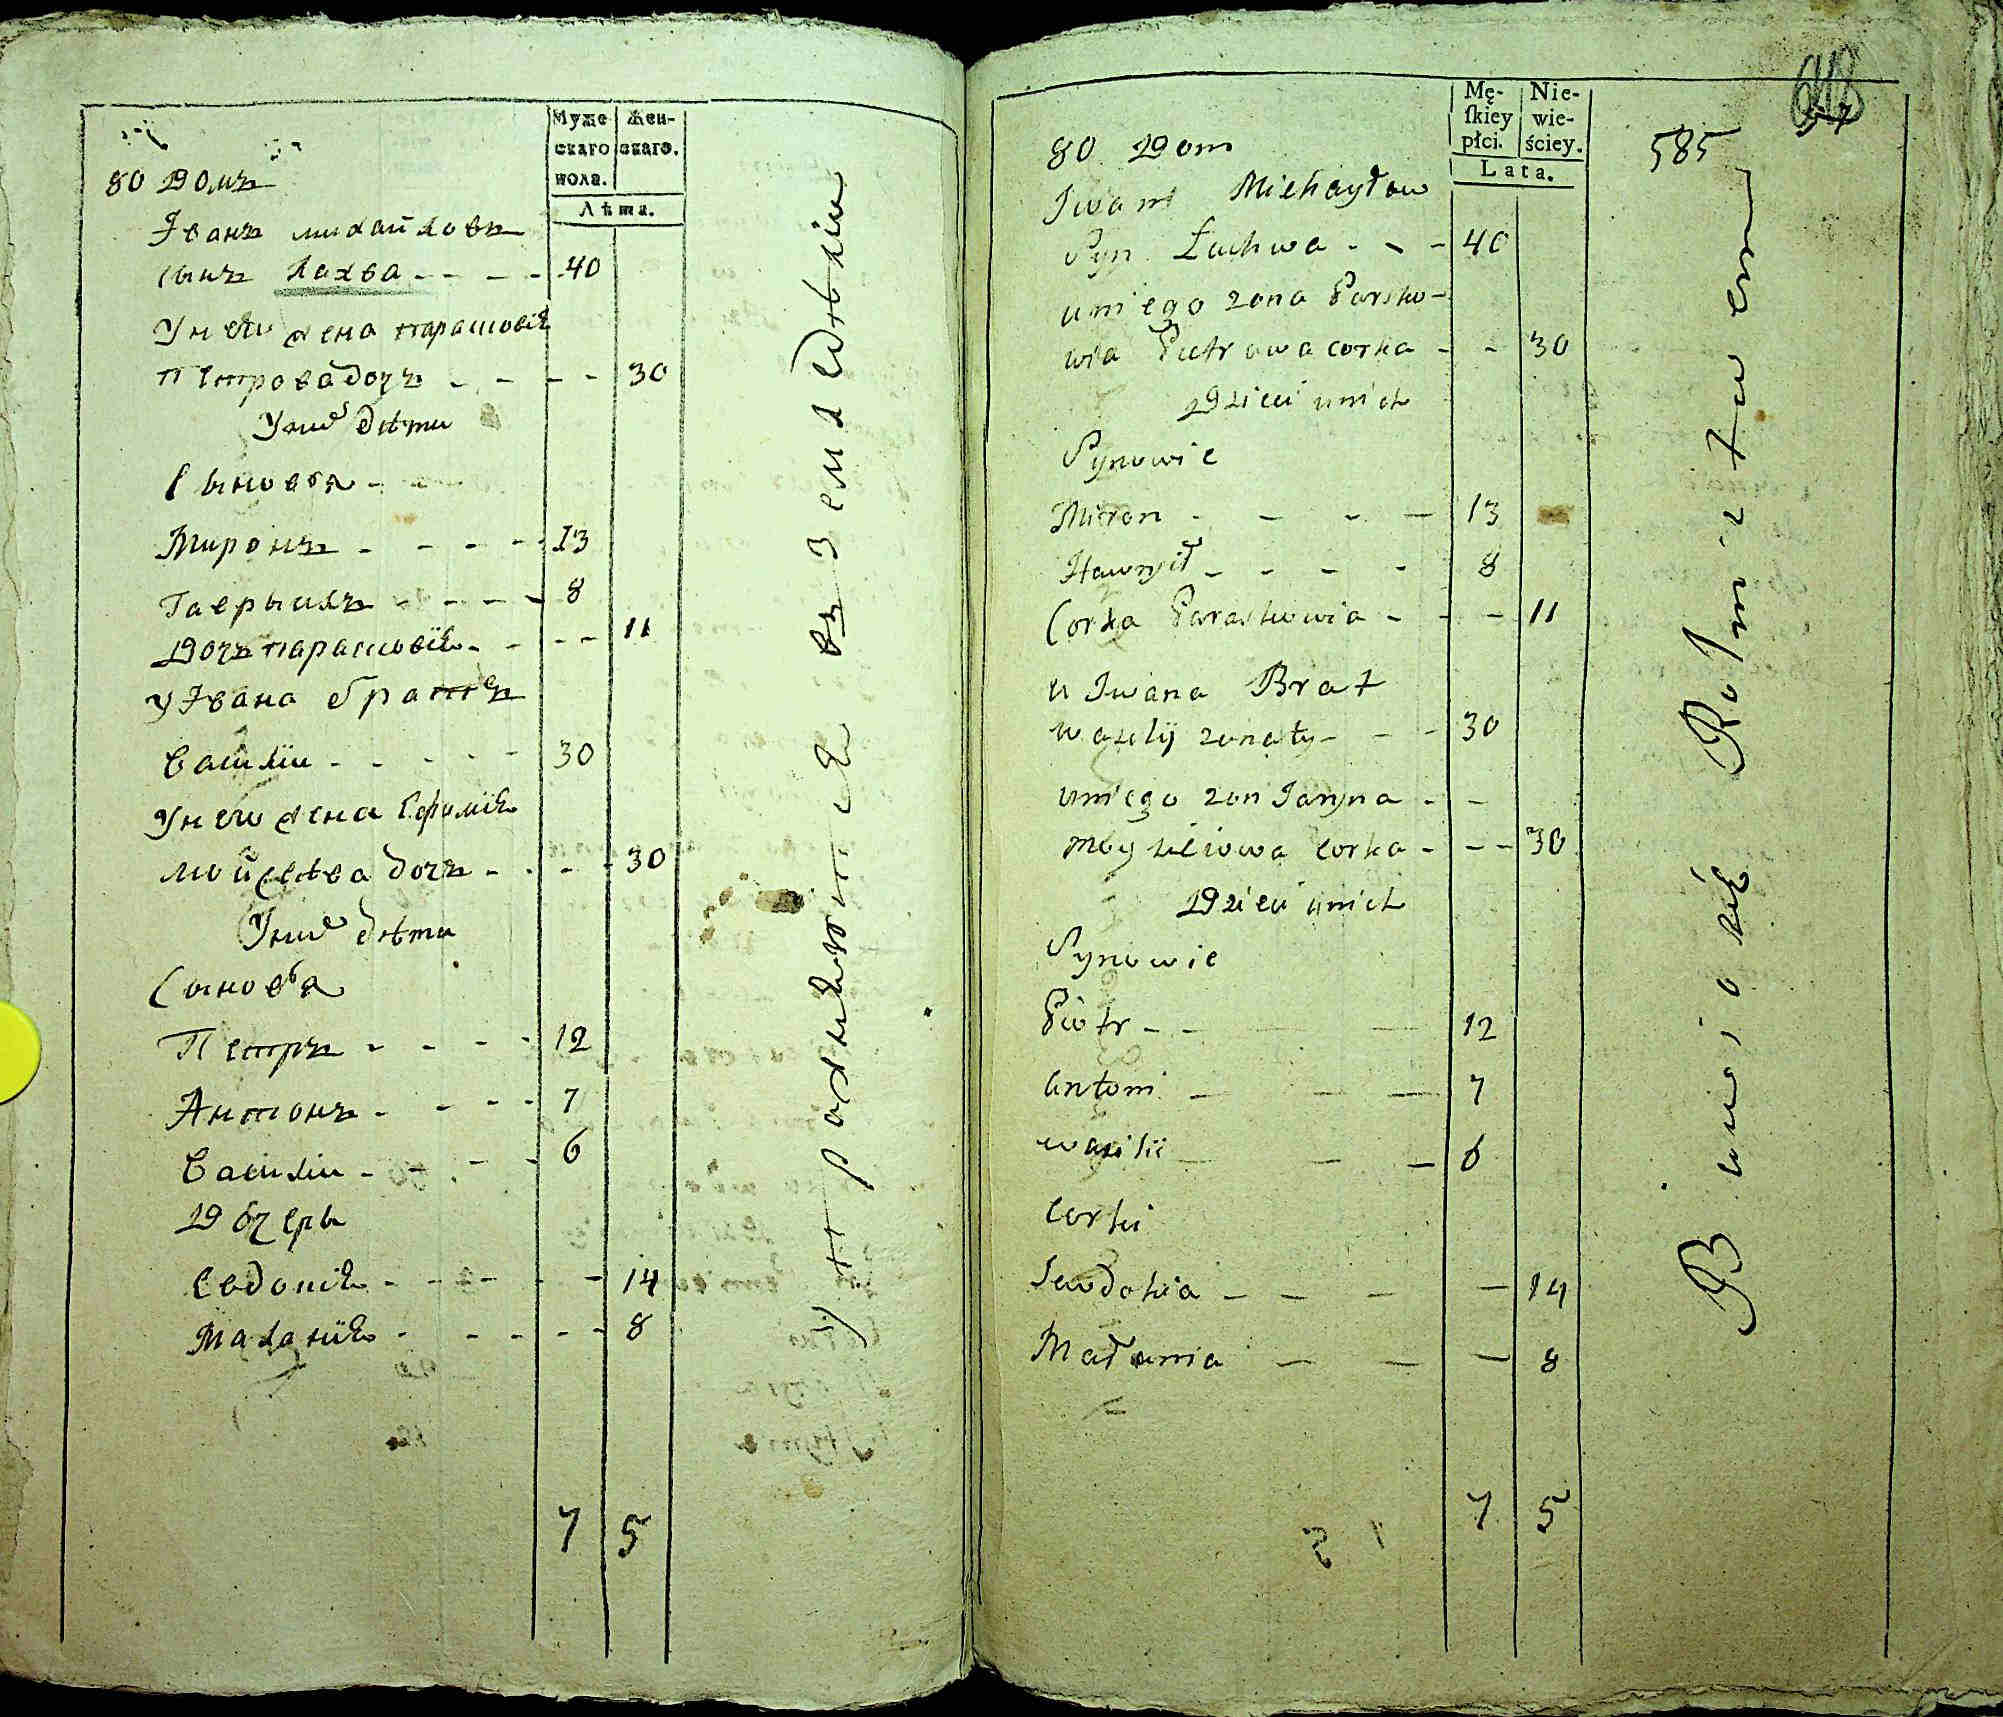 Муже
скаго
пола.
Жен-
скаго.
Лѣта.
80 Домъ
Іванъ михайловъ
сынъ Лахва - - - - 40
У нево жена парасковія
Петрова дочъ - - - - 30
У них дѣти
Сыновя - -
Миронъ - - - - 13
Гаврыилъ - - - - 8
Дочъ парасковія - - - - 11
У Івана братъ
Василіи - - - - 30
У нево жена Ефимія
мойсѣева дочъ - - - - 30
У них дѣти
Сыновья
Петръ - - - - 12
Антонъ - - - - 7
Василіи - - - - 6
Дочеры
Евдокія - - - - - 14
Маланія - - - - - 8
7 5
Упражняется въ Земледѣліи
Mę-
ſkiey
płci.
Nie-
wie-
ściey.
Lata.
585
80 Dom
Iwan Michayłow
Syn Łachwa - - - 40
u niego zona Parsko-
wia Pietrowa corka - - 30
Dzieci u nich
Synowie
Miron - - - - 13
Hawrył - - - - 8
Corka Paraskowia - - - 11
u Iwana Brat
wasilij zonaty - - - 30
u niego zon Jaryna - -
moysieiowa corka - - - 30
Dzieci u nich
Synowie
Piotr - - - - 12
antoni - - - 7
wasilii - - - 6
corki
Jewdokia - - - - 14
Małania - - - 8
7 5
Bawią się Rolnictwem